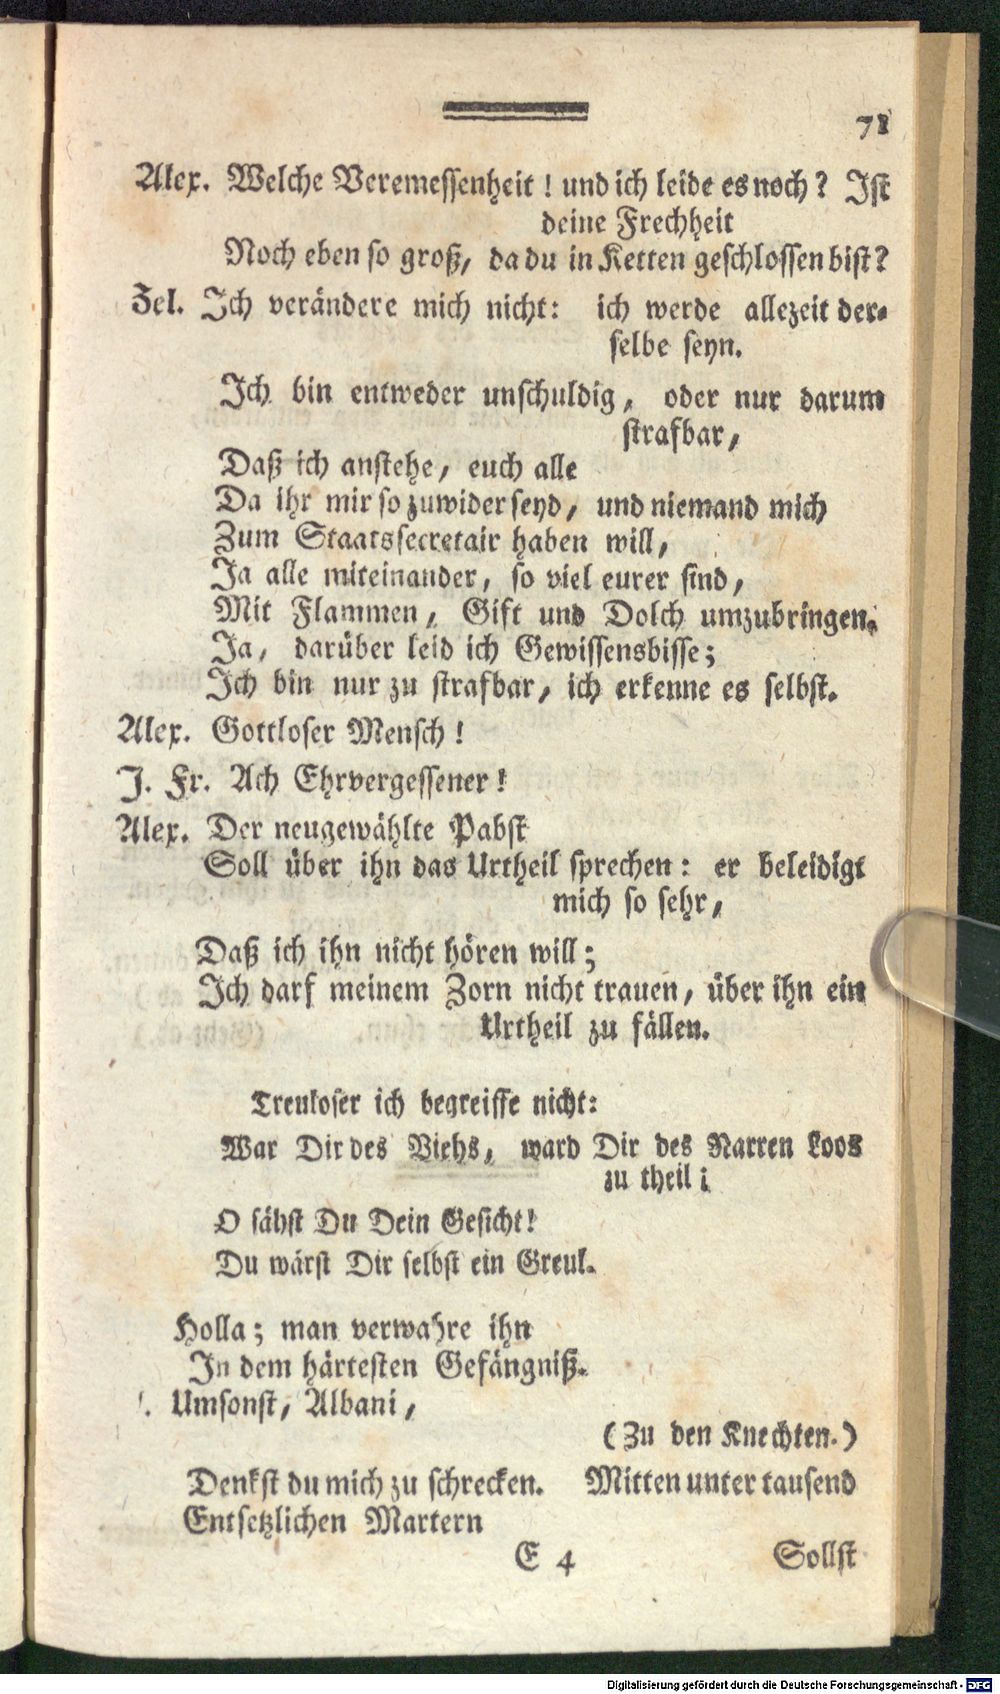 71
Alex. Welche Veremessenheit! und ich leide es noch? Ist
deine Frechheit
Noch eben so groß, da du in Ketten geschlossen bist?
Zel. Ich verändere mich nicht: ich werde allezeit der-
selbe seyn.
Ich bin entweder unschuldig, oder nur darum
strafbar,
Daß ich anstehe, euch alle
Da ihr mir so zuwider seyd, und niemand mich
Zum Staatssecretair haben will,
Ja alle miteinander, so viel eurer sind,
Mit Flammen, Gift und Dolch umzubringen.
Ja, darüber leid ich Gewissensbisse;
Ich bin nur zu strafbar, ich erkenne es selbst.
Alex. Gottloser Mensch!
J. Fr. Ach Ehrvergessener!
Alex. Der neugewählte Pabst
Soll über ihn das Urtheil sprechen: er beleidigt
mich so sehr,
Daß ich ihn nicht hören will;
Ich darf meinem Zorn nicht trauen, über ihn ein
Urtheil zu fällen.
Treuloser ich begreiffe nicht:
War Dir des Viehs, ward Dir des Narren Loos
zu theil;
O sähst Du Dein Gesicht!
Du wärst Dir selbst ein Greul.
Holla; man verwahre ihn
In dem härtesten Gefängniß.
Umsonst, Albani,
(Zu den Knechten.)
Denkst du mich zu schrecken. Mitten unter tausend
Entsetzlichen Martern
E 4 Sollst
Digitalisierung gefördert durch die Deutsche Forschungsgemeinschaft - DFG